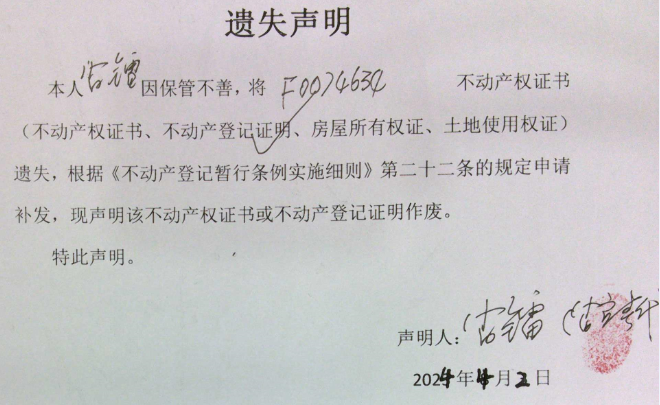 遗失声明
本人 雷镭 因保管不善，将 F0074634 不动产权证书
（不动产权证书、不动产登记证明、房屋所有权证、土地使用权证）
遗失，根据《不动产登记暂行条例实施细则》第二十二条的规定申请
补发，现声明该不动产权证书或不动产登记证明作废。
特此声明。
声明人：雷镭
2024年4月2日